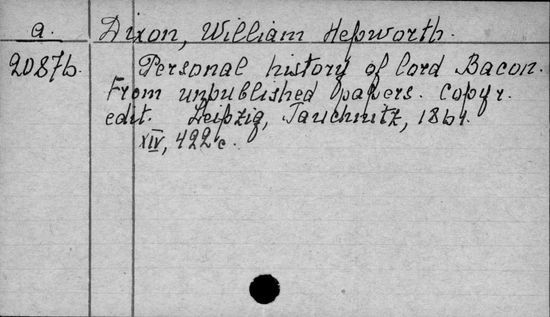 a. Dixon, William Hepworth.
20876. Personal history of lord Bacon.
From unpublished papers. Copyr.
edit. Leipzig, Tauchnitz, 1861.
XIV, 422 c.